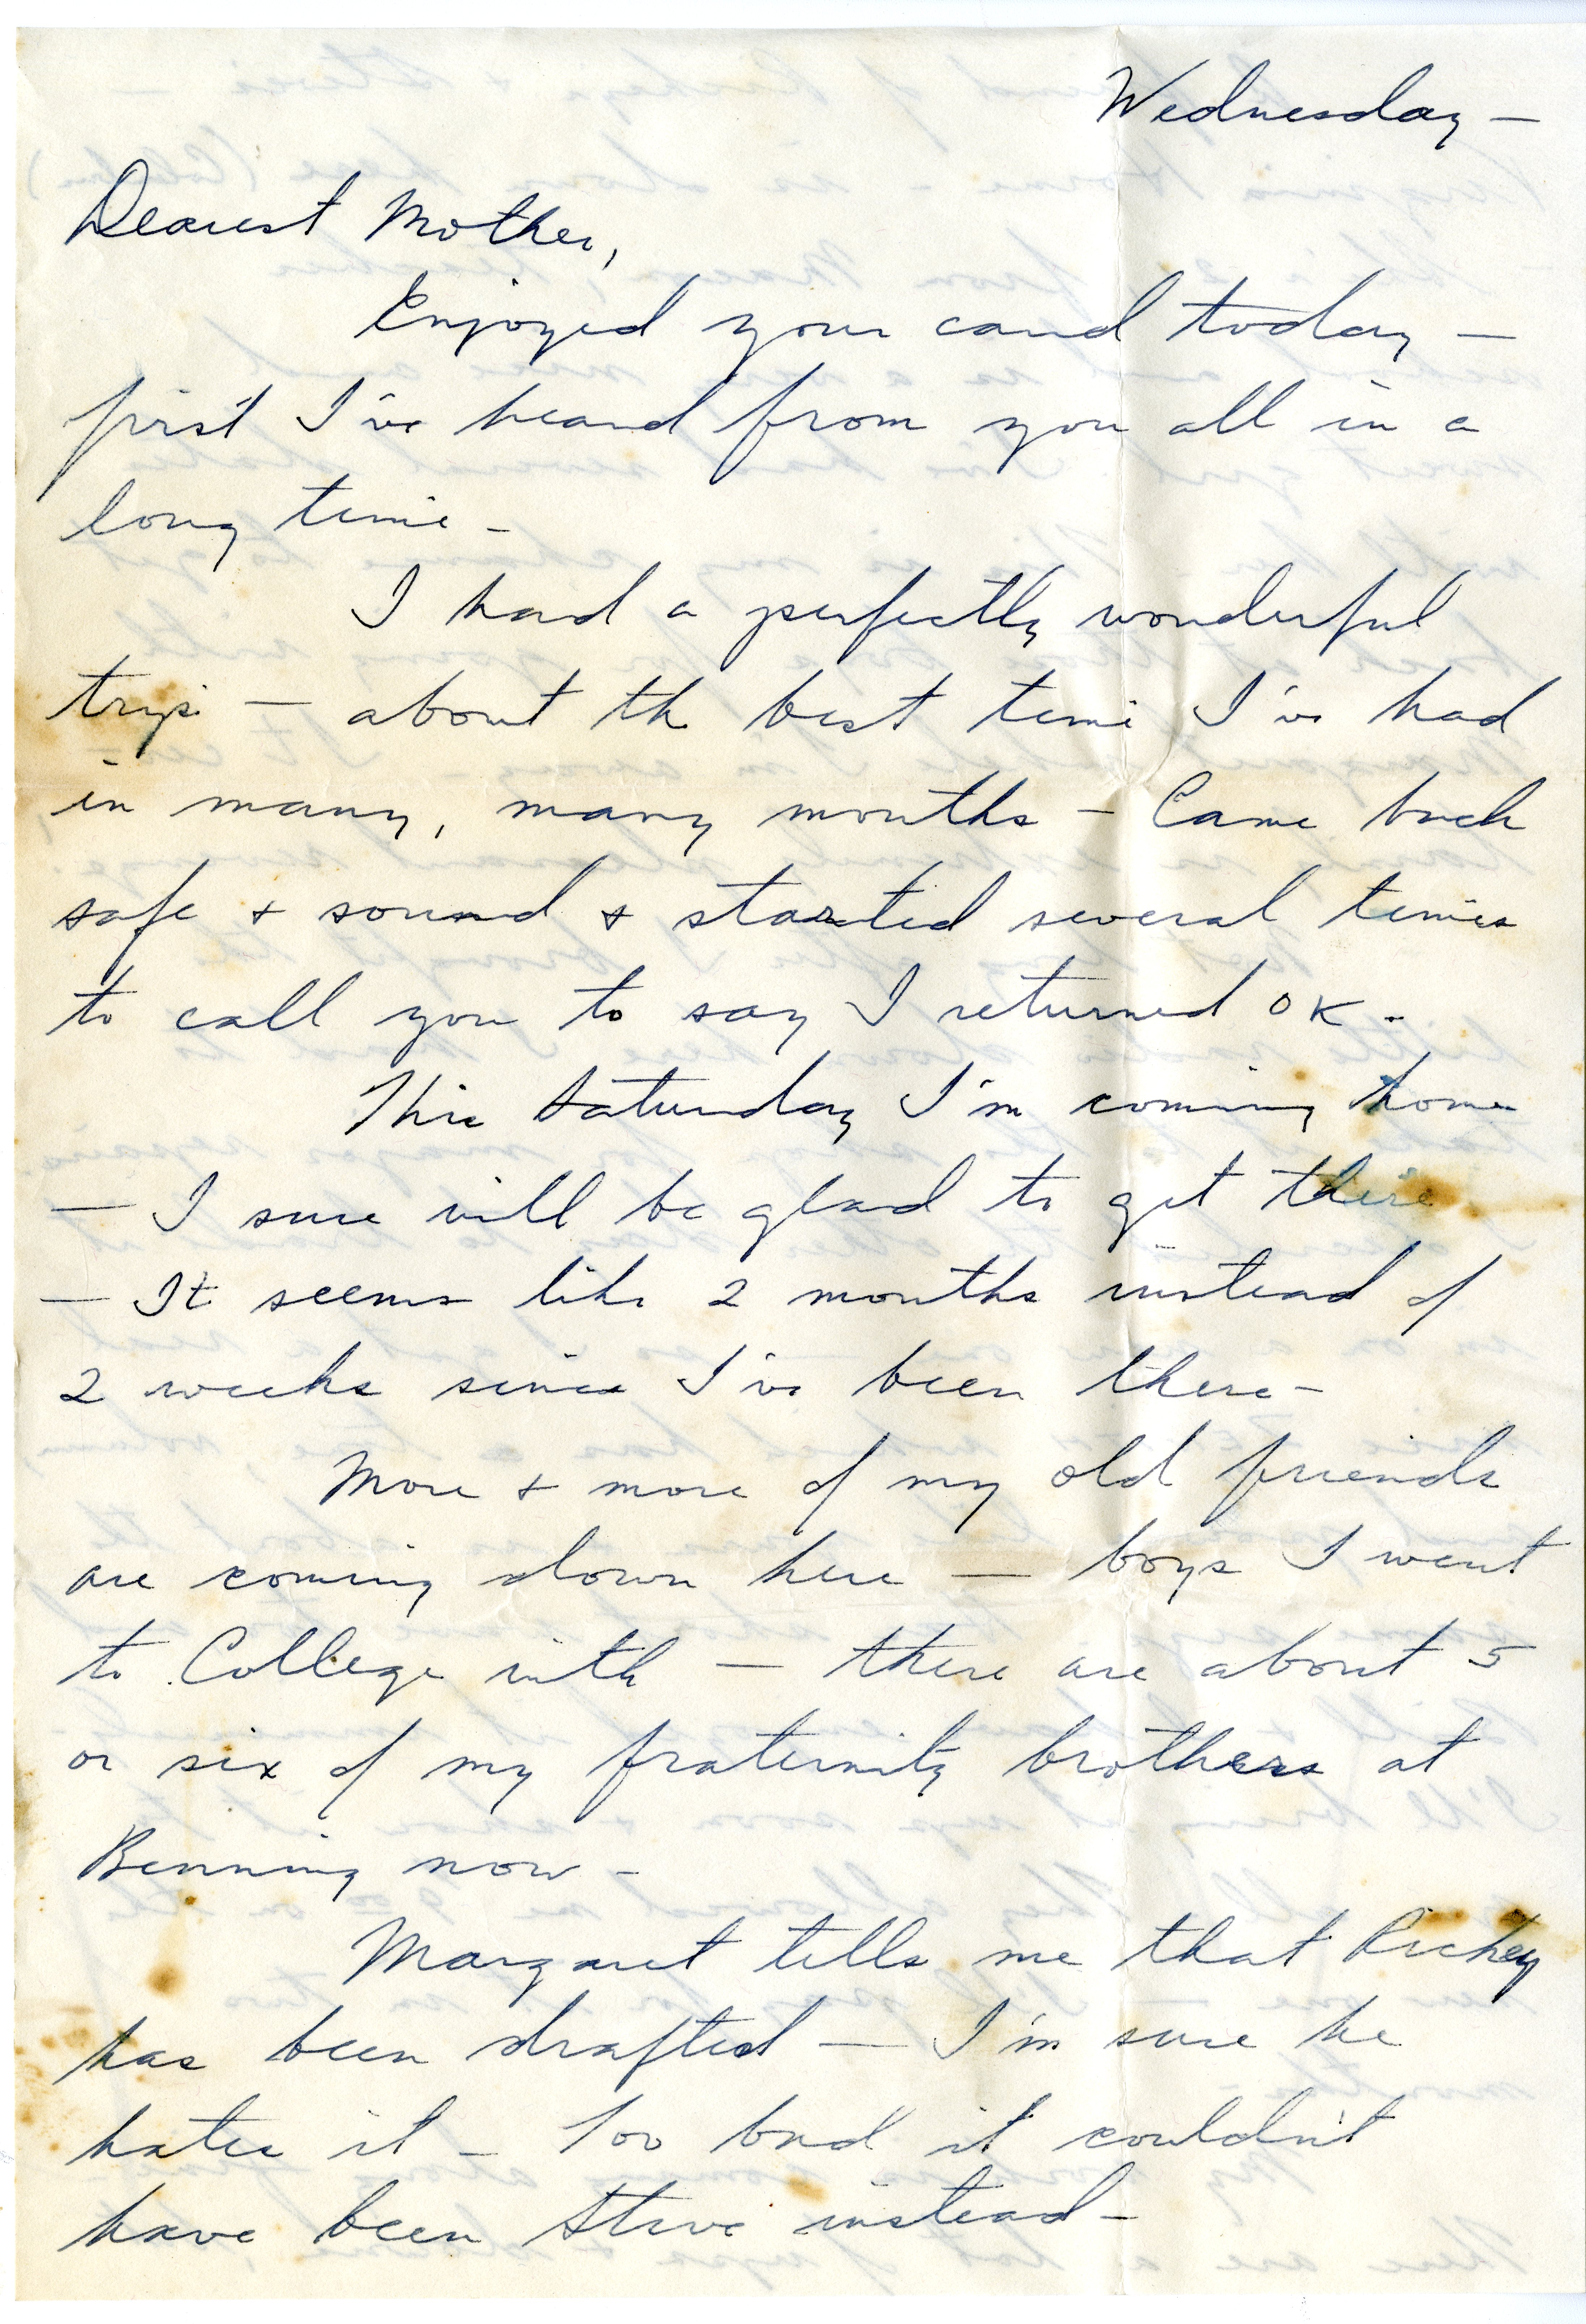 Wednesday —
Dearest Mother,
Enjoyed your card today —
first I've heard from you all in a
long time -
I had a perfectly wonderful
trip — about the best time I've had
in many, many months - Came back
safe + sound & started several times
to call you to say I returned OK -
This Saturday I'm coming home
— I sure will be glad to get there
— It seems like 2 months instead of
2 weeks since I've been there -
More + more of my old friends
are coming down here — boys I went
to College with — there are about 5
or six of my fraternity brothers at
Benning now -
Margaret tells me that Richey
has been drafted — I'm sure he
hates it - Too bad it couldn't
have been Steve instead -